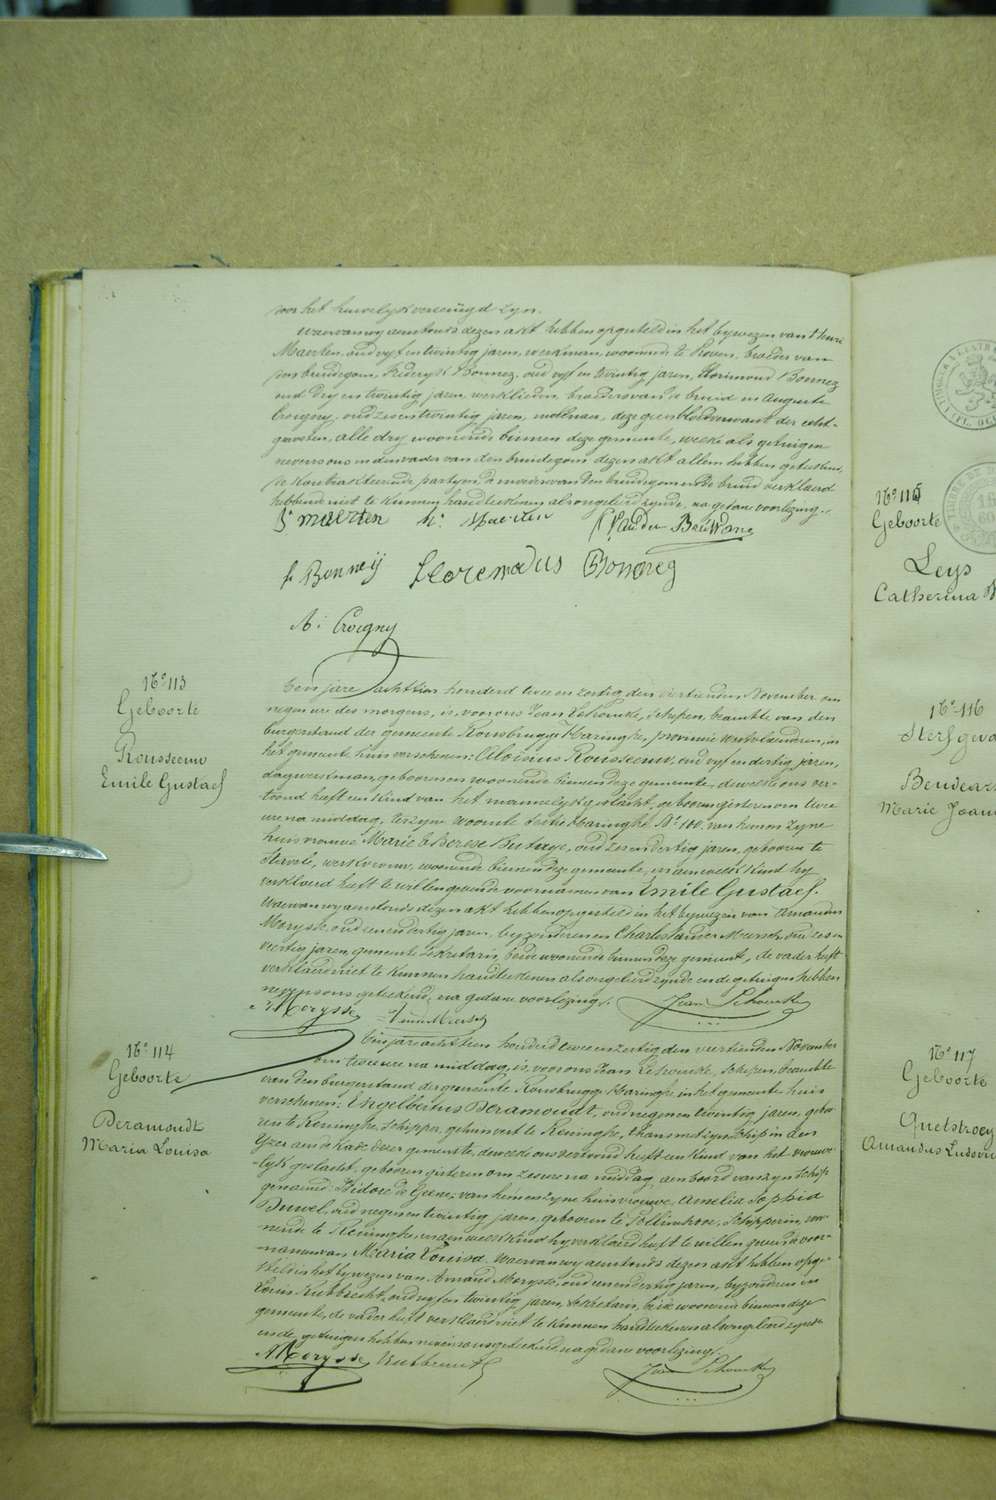 door het huwelyk vereenigd zyn.
Waervan wy aenstonds dezen akt hebben opgesteld in het bywezen van Henri
Maerten, oud vyf en twintig jaren, werkman, woonende te Hoven, broeder van
den bruidegom, Frederyk Bonnez, oud vyf en twintig jaren, Florimond Bonnez
oud dry en twintig jaren, werklieden, broeders van de bruid en Auguste
Croigny, oud zes en twintig jaren, molenaer, deze geen bloedverwant der echt-
genooten, alle dry woonende binnen deze gemeente, welke als getuigen
nevens ons en den vader van den bruidegom dezen akt allen hebben geteekend,
de kontrakteerende partyen, de moeder van den bruidegom en de bruid verklaerd
hebbende niet te kunnen handteekenen als ongeleerd zynde, na gedane voorlezing.
Maerten H. Maerten
f. Bonneÿ Floremodus Bonneg
A. Croigny
N° 113
Geboorte
Rousseeuw
Emile Gustaef
Ten jare achttien honderd twee en zestig, den veertienden November om
negen ure des morgens, is, voor ons Jean Lehoucke, schepen, beambte van den
burgerstand der gemeente Rousbrugge Haringhe, provincie Westvlaenderen, in
het gemeente huis verschenen: Aloisius Rousseeuw, oud vyf en dertig jaren,
dagwerkman, geboren en woonende binnen deze gemeente, dewelke ons ver-
toond heeft een kind van het mannelyk geslacht, geboren gisteren om twee
ure na middag, ter zyne woonste sectie Haringhe N° 100, van hem en zyne
huisvrouwe Marie Therese Butaye, oud zes en dertig jaren, geboren te
werkvrouw, woonende binnen deze gemeente, en aen welk kind hy
verklaerd heeft te willen geven de voornamen van Emile Gustaef.
Waervan wy aenstonds dezen akt hebben opgesteld in het bywezen van Amandus
Morysse, oud een en dertig jaren, byzonderen en Charles Vander Meersch, oud zes en
veertig jaren, gemeente sekretaris, beide woonende binnen deze gemeente, de vader heeft
verklaerd niet te kunnen handteekenen als ongeleerd zynde en de getuigen hebben
nevens ons geteekend, na gedane voorlezing.
A Morysse VanderMeersch Jean Lehoucke
N° 114
Geboorte
Deramoudt
Maria Louisa
Ten jare achttien honderd twee en zestig den veertienden November
om twee ure na middag, is, voor ons Jean Lehoucke, schepen, beambte
van den burgerstand der gemeente Rousbrugge Haringhe, in het gemeente huis
verschenen: Engelbertus Deramoudt, oud negen en twintig jaren, gebo-
ren te Reninghe, schipper, gehuisvest te Reninghe, thans met zyn schip in den
Yzer aen de kade dezer gemeente, dewelke ons vertoond heeft een kind van het vrouwe-
lyk geslacht, geboren gisteren om zes ure na middag, aen boord van zyn schip
genaemd: Isidore de Geene, van hem en zyne huisvrouwe, Amelia Sophia
Duwel, oud negen en twintig jaren, geboren te Pollinchove, schipperin, woo-
nende te Reninghe, en aen welk kind hy verklaerd heeft te willen geven de voor-
namen van Maaria Louisa. Waervan wy aenstonds dezen akt hebben opge-
steld in het bywezen van Amand Morysse, oud een en dertig jaren, byzonderen en
Louis Rubbrecht, oud vyf en twintig jaren, sekretaris, beide woonende binnen deze
gemeente, de vader heeft verklaerd niet te kunnen handteekenen als ongeleerd zynde
en de getuigen hebben nevens ons geteekend na gedane voorlezing.
A Morysse Rubbrecht L Jean Lehoucke
N° 115
Geboorte
Leys
Catherina
N° 116
Sterfgeval
Marie
N° 117
Geboorte
Quetstroey
Amandus Ludovi